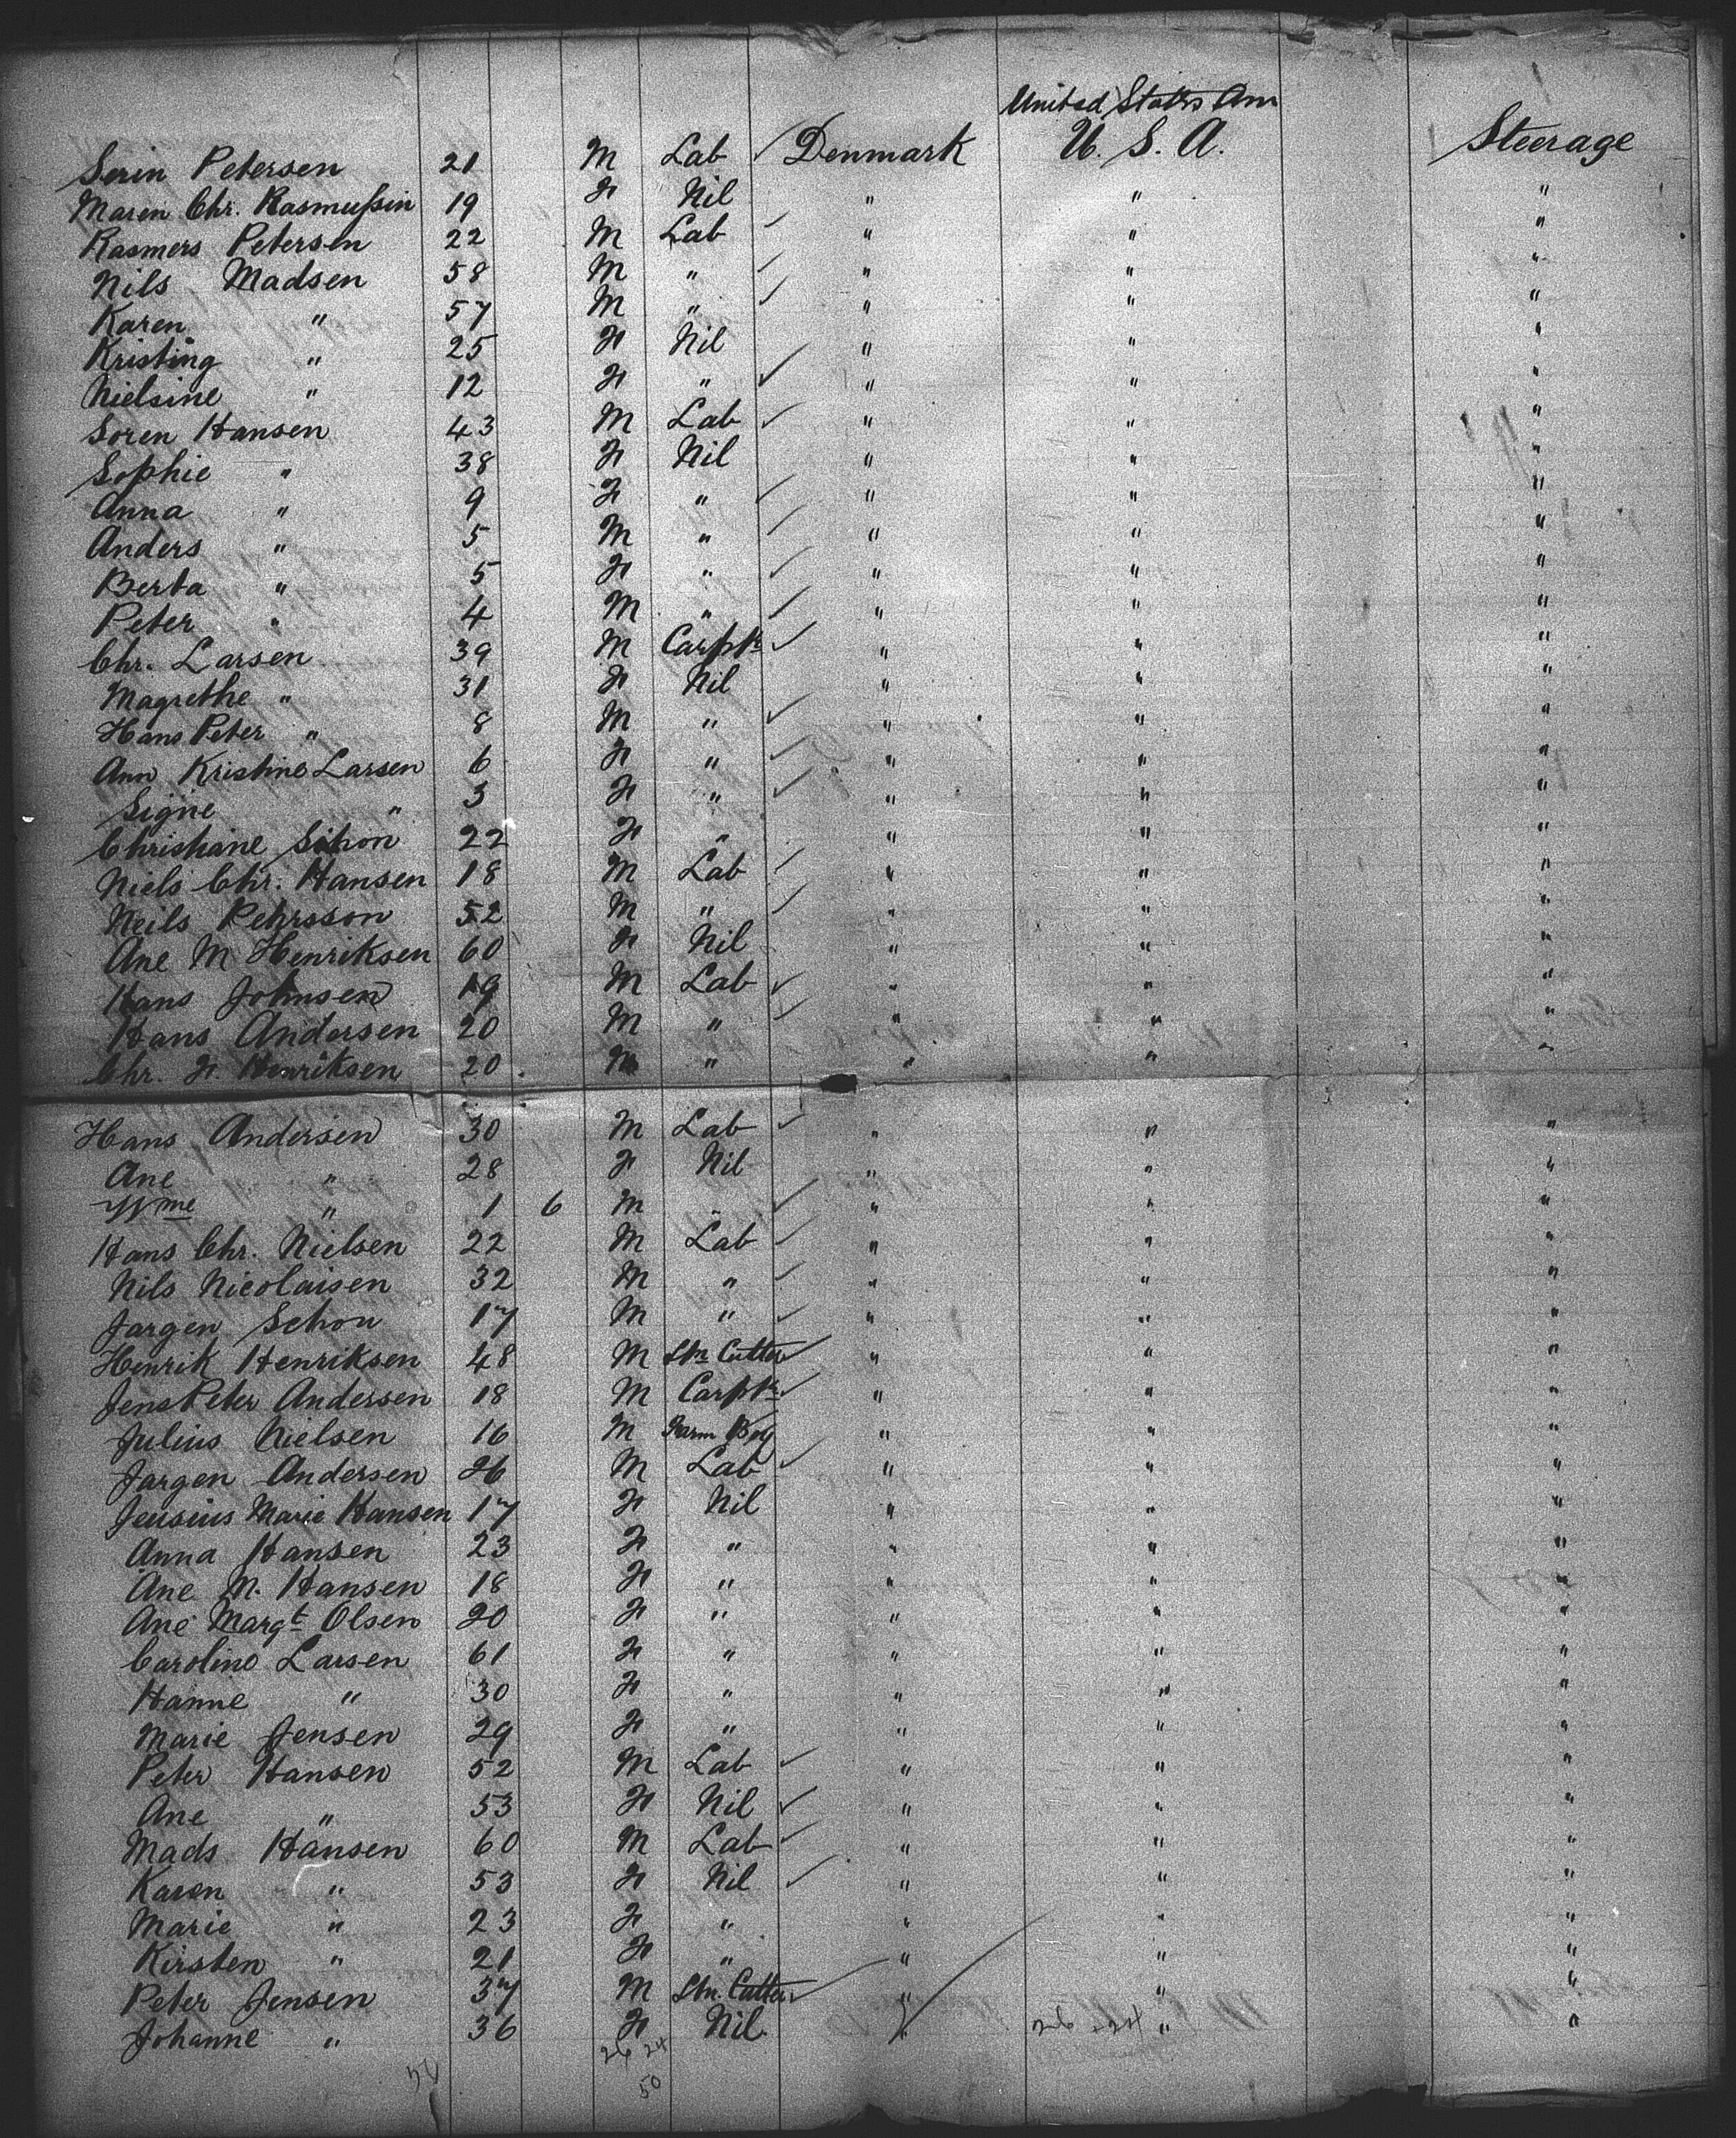 United States Am
Serin Petersen 21 M Lab ✓ Denmark U. S. A. Steerage
Maren Chr. Rasmussin 19 F Nil " " "
Rasmers Petersen 22 M Lab ✓ " " "
Nils Madsen 58 M " ✓ " " "
Karen " 57 M " ✓ " " "
Kristing " 25 F Nil " " "
Nielsine " 12 F " ✓ " " "
Soren Hansen 43 M Lab ✓ " " "
Sophie " 38 F Nil " " "
Anna " 9 F " ✓ " " "
Anders " 5 M " ✓ " " "
Berta " 5 F " ✓ " " "
Peter " 4 M " ✓ " " "
Chr. Larsen 39 M Carptr ✓ " " "
Magrethe " 31 F Nil " " "
Hans Peter " 8 M " ✓ " " "
Ann Kristine Larsen 6 F " ✓ " " "
Signe " 3 F " ✓ " " "
Christiane Schon 22 F " " " "
Niels Chr. Hansen 18 M Lab ✓ " " "
Neils Pehrsson 52 M " ✓ " " "
Ane M Henriksen 60 F Nil " " "
Hans Johnsen 19 M Lab ✓ " " "
Hans Andersen 20 M " ✓ " " "
Chr. F. Henriksen 20 M " " " "
Hans Andersen 30 M Lab ✓ " " "
Ane " 28 F Nil " " "
Wme " 1 6 M " ✓ " " "
Hans Chr. Nielsen 22 M Lab ✓ " " "
Nils Nicolaisen 32 M " ✓ " " "
Jargen Schou 17 M " ✓ " " "
Henrik Henriksen 48 M Stn Cutter ✓ " " "
Jens Peter Andersen 18 M Carptr ✓ " " "
Julius Nielsen 16 M Farm Boy " " "
Jargen Andersen 26 M Lab ✓ " " "
Jensius Marie Hansen 17 F Nil " " "
Anna Hansen 23 F " " " "
Ane M. Hansen 18 F " " " "
Ane Margt Olsen 20 F " " " "
Caroline Larsen 61 F " " " "
Hanne " 30 F " " " "
Marie Jensen 29 F " " " "
Peter Hansen 52 M Lab ✓ " " "
Ane " 53 F Nil ✓ " " "
Mads Hansen 60 M Lab ✓ " " "
Karen " 53 F Nil ✓ " " "
Marie " 23 F " " " "
Kirsten " 21 F " " " "
Peter Jensen 37 M Stn. Cutter ✓ " " "
Johanne " 36 F Nil. " 26 24 " "
26 24
50